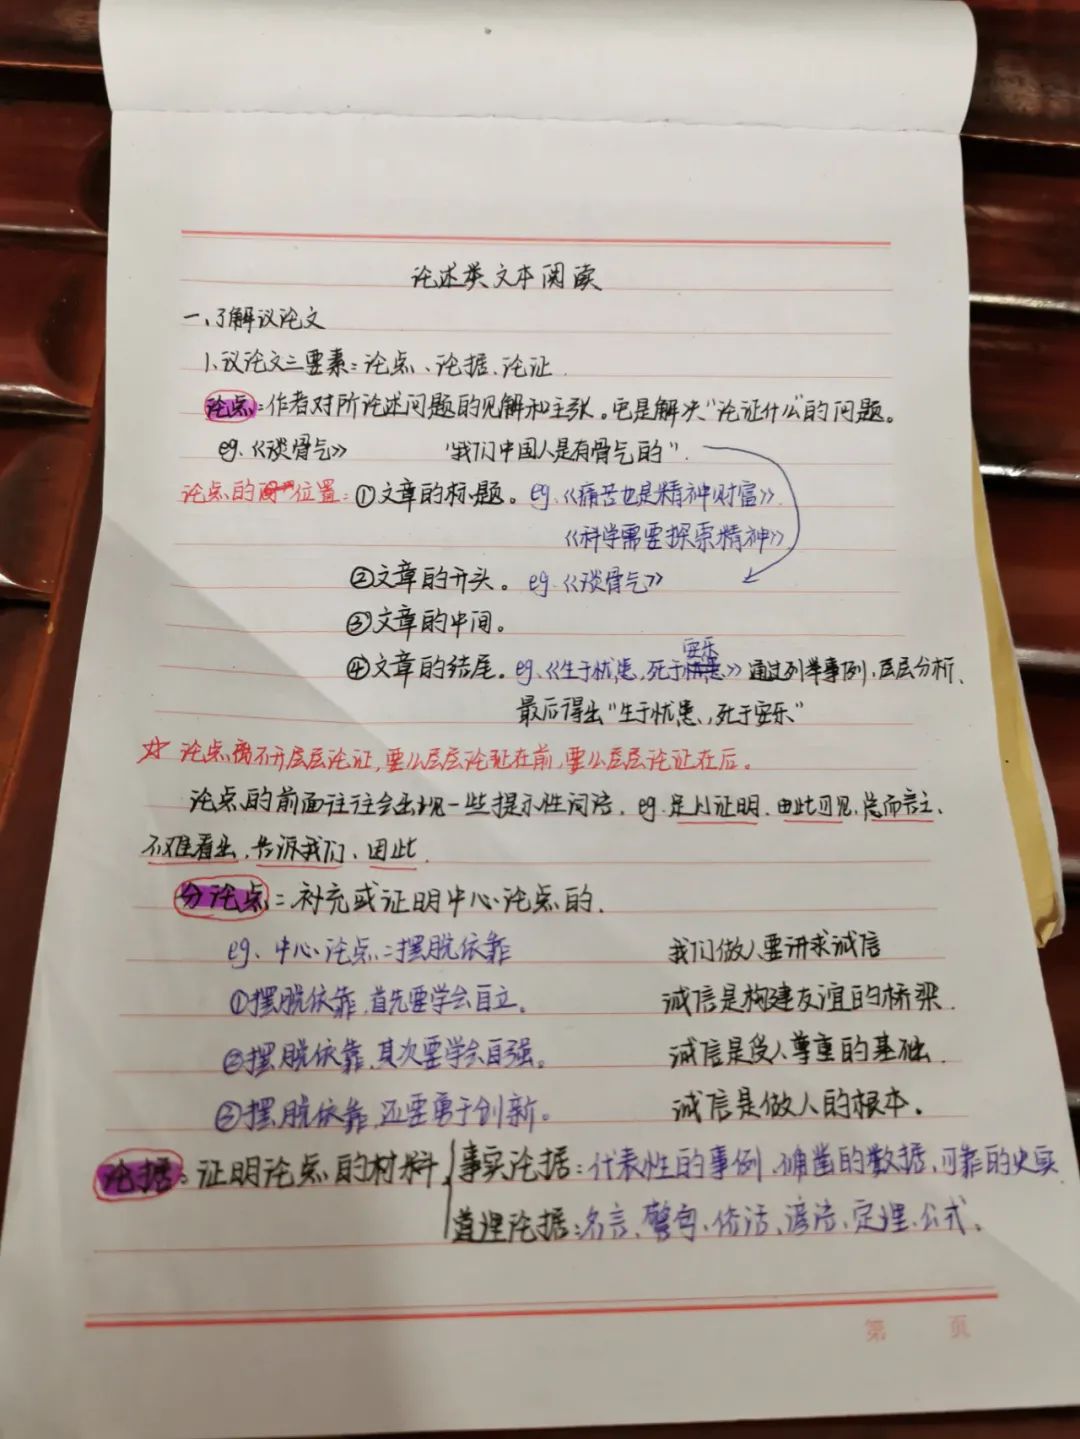 论述类文本阅读
一、了解议论文
1、议论文三要素：论点、论据、论证.
论点：作者对所论述问题的见解和主张。它是解决“论证什么”的问题。
eg.《谈骨气》 “我们中国人是有骨气的”.
论点的位置：①文章的标题。eg.《痛苦也是精神财富》
《科学需要探索精神》
②文章的开头。eg.《谈骨气》
③文章的中间。
④文章的结尾。eg.《生于忧患,死于安乐》通过列举事例,层层分析、
最后得出“生于忧患,死于安乐”
☆ 论点离不开层层论证,要么层层论证在前,要么层层论证在后。
论点的前面往往会出现一些提示性词语. eg.足以证明.由此可见、总而言之、
不难看出、告诉我们、因此.
分论点：补充或证明中心论点的.
eg、中心论点：摆脱依靠 我们做人要讲求诚信
①摆脱依靠,首先要学会自立。 诚信是构建友谊的桥梁.
②摆脱依靠,其次要学会自强。 诚信是受人尊重的基础.
③摆脱依靠,还要勇于创新。 诚信是做人的根本.
论据：证明论点的材料 事实论据：代表性的事例、确凿的数据、可靠的史实.
道理论据：名言、警句、俗话、谚语、定理、公式、
第 页